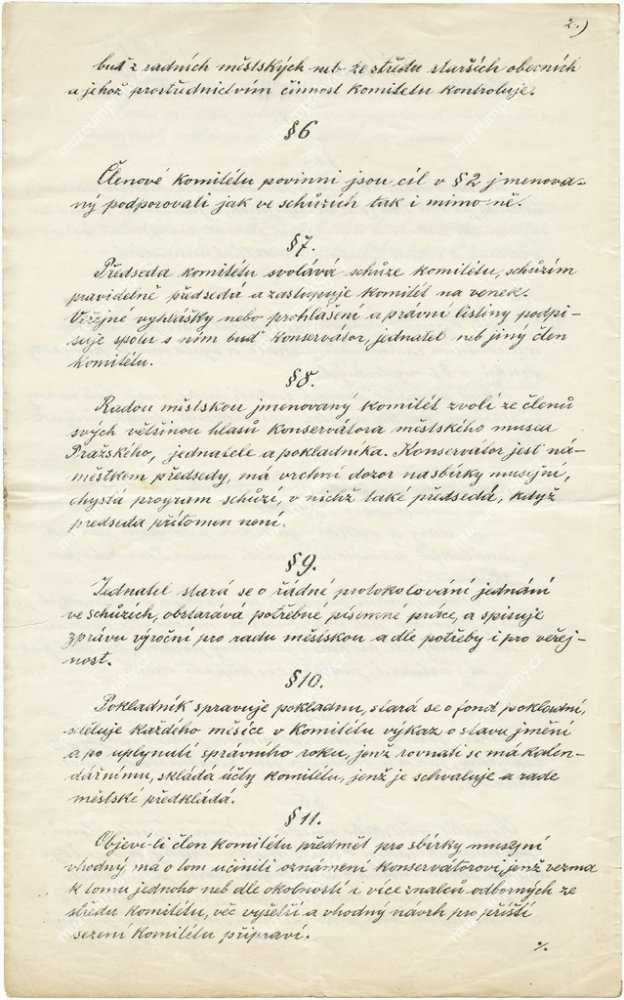 2.)
buď z radních městských neb ze středu starších obecních
a jehož prostřednictvím činnost komitétu kontroluje.
§ 6
Členové komitétu povinni jsou cíl v § 2 jmenova-
ný podporovati jak ve schůzích tak i mimo ně.
§ 7.
Předseda komitétu svolává schůze komitétu, schůzím
pravidelně předsedá a zastupuje komitét na venek.
Veřejné vyhlášky nebo prohlášení a právní listiny podpi-
suje spolu s ním buď konservátor, jednatel neb jiný člen
komitétu.
§ 8.
Radou městskou jmenovaný komitét zvolí ze členů
svých většinou hlasů konservátora městského musea
Pražského, jednatele a pokladníka. Konservátor jest ná-
městkem předsedy, má vrchní dozor na sbírky musejní,
chystá program schůzí, v nichž také předsedá, když
předseda přítomen není.
§ 9.
Jednatel stará se o řádné protokolování jednání
ve schůzích, obstarává potřebné písemné práce, a spisuje
zprávu výroční pro radu městskou a dle potřeby i pro veřej-
nost.
§ 10.
Pokladník spravuje pokladnu, stará se o fond pokladní,
sděluje každého měsíce v komitétu výkaz o stavu jmění
a po uplynutí správního roku, jenž rovnati se má kalen-
dářnímu, skládá účty komitétu, jenž je schvaluje a radě
městské předkládá.
§ 11.
Objeví-li člen komitétu předmět pro sbírky musejní
vhodný, má o tom učiniti oznámení konservátorovi, jenž vezma
k tomu jednoho neb dle okolností i více znalců odborných ze
středu komitétu, věc vyšetří a vhodný návrh pro příští
sezení komitétu připraví.
./.